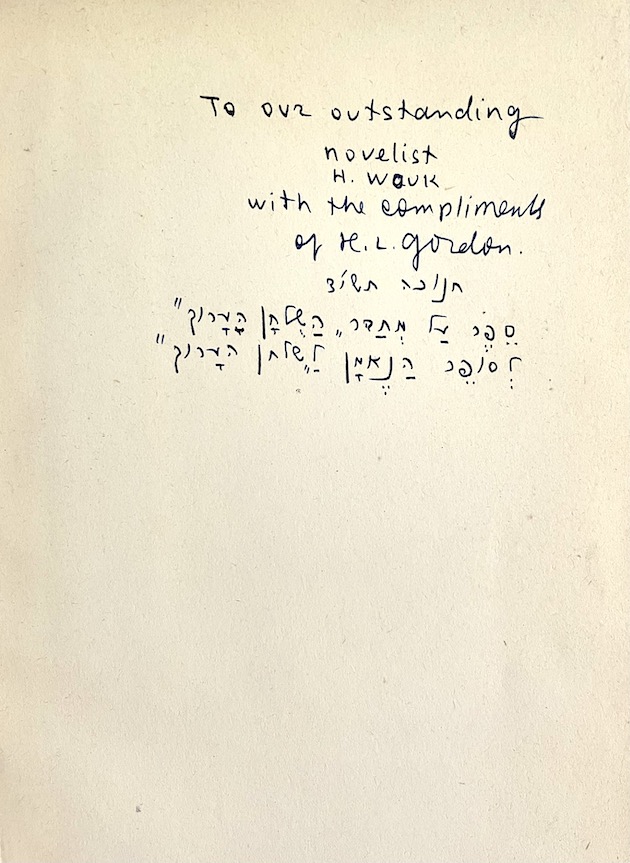 To our outstanding
novelist
H. Wouk
with the compliments
of H. L. Gordon.
חנוכה תשי"ד
סֵפֶר עַל מְחַבֵּר „הַשֻלְחָן הָעָרוּךְ"
לְסוֹפֵר הַנֶאֱמָן לַ„שלחן הָערוך"